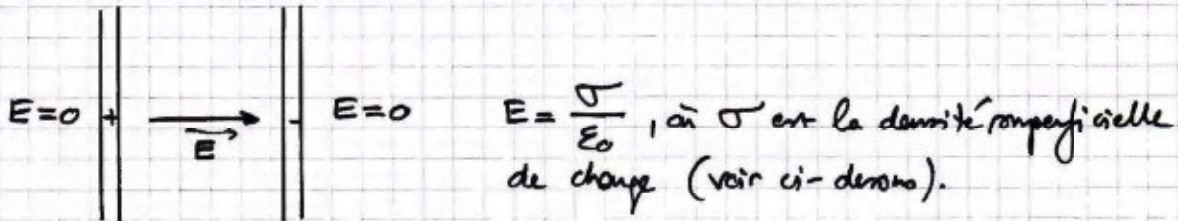 E=0 + E⃗ - E=0 E = σ/ε₀, où σ est la densité superficielle
de charge (voir ci-dessous).